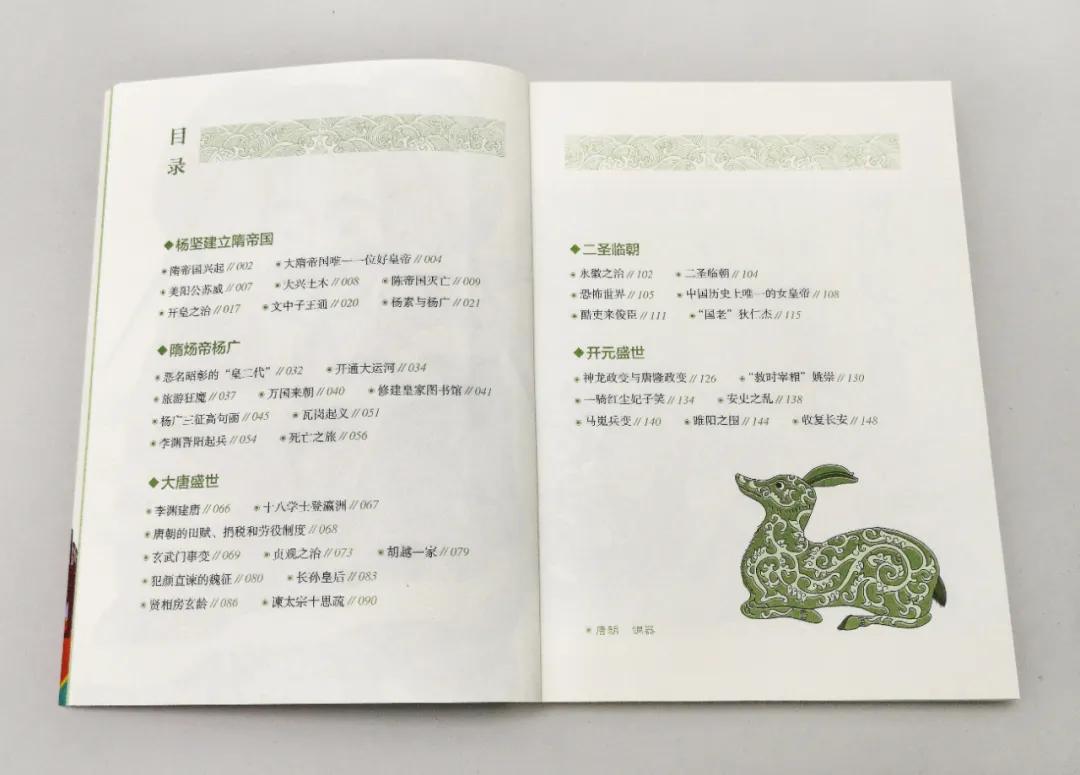 目录
◆杨坚建立隋帝国
隋帝国兴起 // 002 大隋帝国唯一一位好皇帝 // 004
美阳公苏威 // 007 大兴土木 // 008 陈帝国灭亡 // 009
开皇之治 // 017 文中子王通 // 020 杨素与杨广 // 021
◆隋炀帝杨广
恶名昭彰的“皇二代” // 032 开通大运河 // 034
旅游狂魔 // 037 万国来朝 // 040 修建皇家图书馆 // 041
杨广三征高句丽 // 045 瓦岗起义 // 051
李渊晋阳起兵 // 054 死亡之旅 // 056
◆大唐盛世
李渊建唐 // 066 十八学士登瀛洲 // 067
唐朝的田赋、捐税和劳役制度 // 068
玄武门事变 // 069 贞观之治 // 073 胡越一家 // 079
犯颜直谏的魏征 // 080 长孙皇后 // 083
贤相房玄龄 // 086 谏太宗十思疏 // 090
◆二圣临朝
永徽之治 // 102 二圣临朝 // 104
恐怖世界 // 105 中国历史上唯一的女皇帝 // 108
酷吏来俊臣 // 111 “国老”狄仁杰 // 115
◆开元盛世
神龙政变与唐隆政变 // 126 “救时宰相”姚崇 // 130
一骑红尘妃子笑 // 134 安史之乱 // 138
马嵬兵变 // 140 睢阳之围 // 144 收复长安 // 148
唐朝 银器